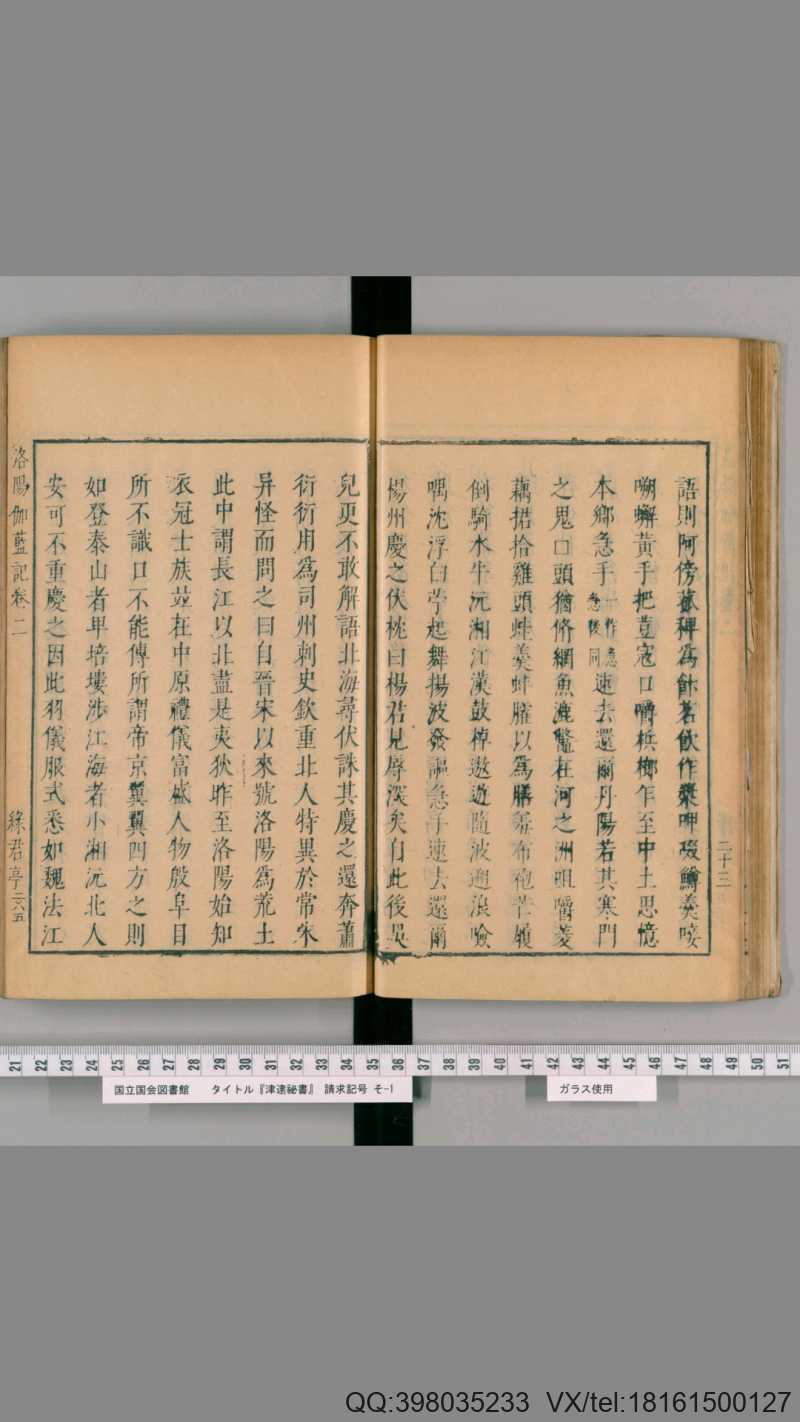 語則阿傍菰稗爲飰茗飲作漿呷啜鱒羹唼
嗍蠏黃手把荳蔻口嚼梹榔乍至中土思憶
本鄉急手一作急急後同速去還爾丹陽若其寒門
之鬼口頭猶脩網魚漉鱉在河之洲咀嚼菱
藕捃拾雞頭蛙羹蚌臛以爲膳羞布袍芒履
倒騎水牛沅湘江漢鼓棹遨遊隨波遡浪噞
喁沈浮白苧起舞揚波發謳急手速去還爾
楊州慶之伏枕曰楊君見辱深矣自此後吳
兒更不敢解語北海尋伏誅其慶之還奔蕭
衍衍用爲司州刺史欽重北人特異於常朱
异怪而問之曰自晉宋以來號洛陽爲荒土
此中謂長江以北盡是夷狄昨至洛陽始知
衣冠士族並在中原禮儀富盛人物殷阜目
所不識口不能傳所謂帝京翼翼四方之則
如登泰山者卑培塿涉江海者小湘沅北人
安可不重慶之因此羽儀服式悉如魏法江
洛陽伽藍記卷二
綠君亭
二十三
国立国会図書館 タイトル『津逮秘書』 請求記号 そ-1
ガラス使用
21 22 23 24 25 26 27 28 29 30 31 32 33 34 35 36 37 38 39 40 41 42 43 44 45 46 47 48 49 50 51
QQ:398035233 VX/tel:18161500127